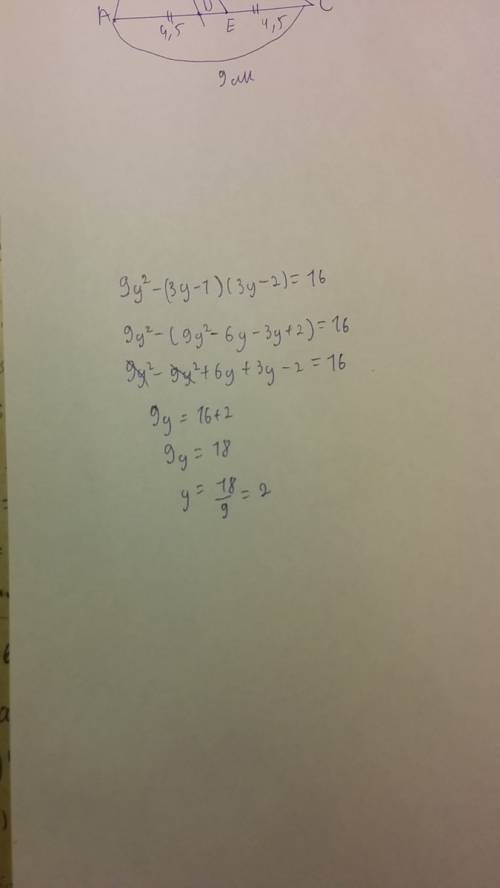 A D C
4,5 E 4,5
9 см
9y² - (3y - 1)(3y - 2) = 16
9y² - (9y² - 6y - 3y + 2) = 16
9y² - 9y² + 6y + 3y - 2 = 16
9y = 16 + 2
9y = 18
y = 18/9 = 2